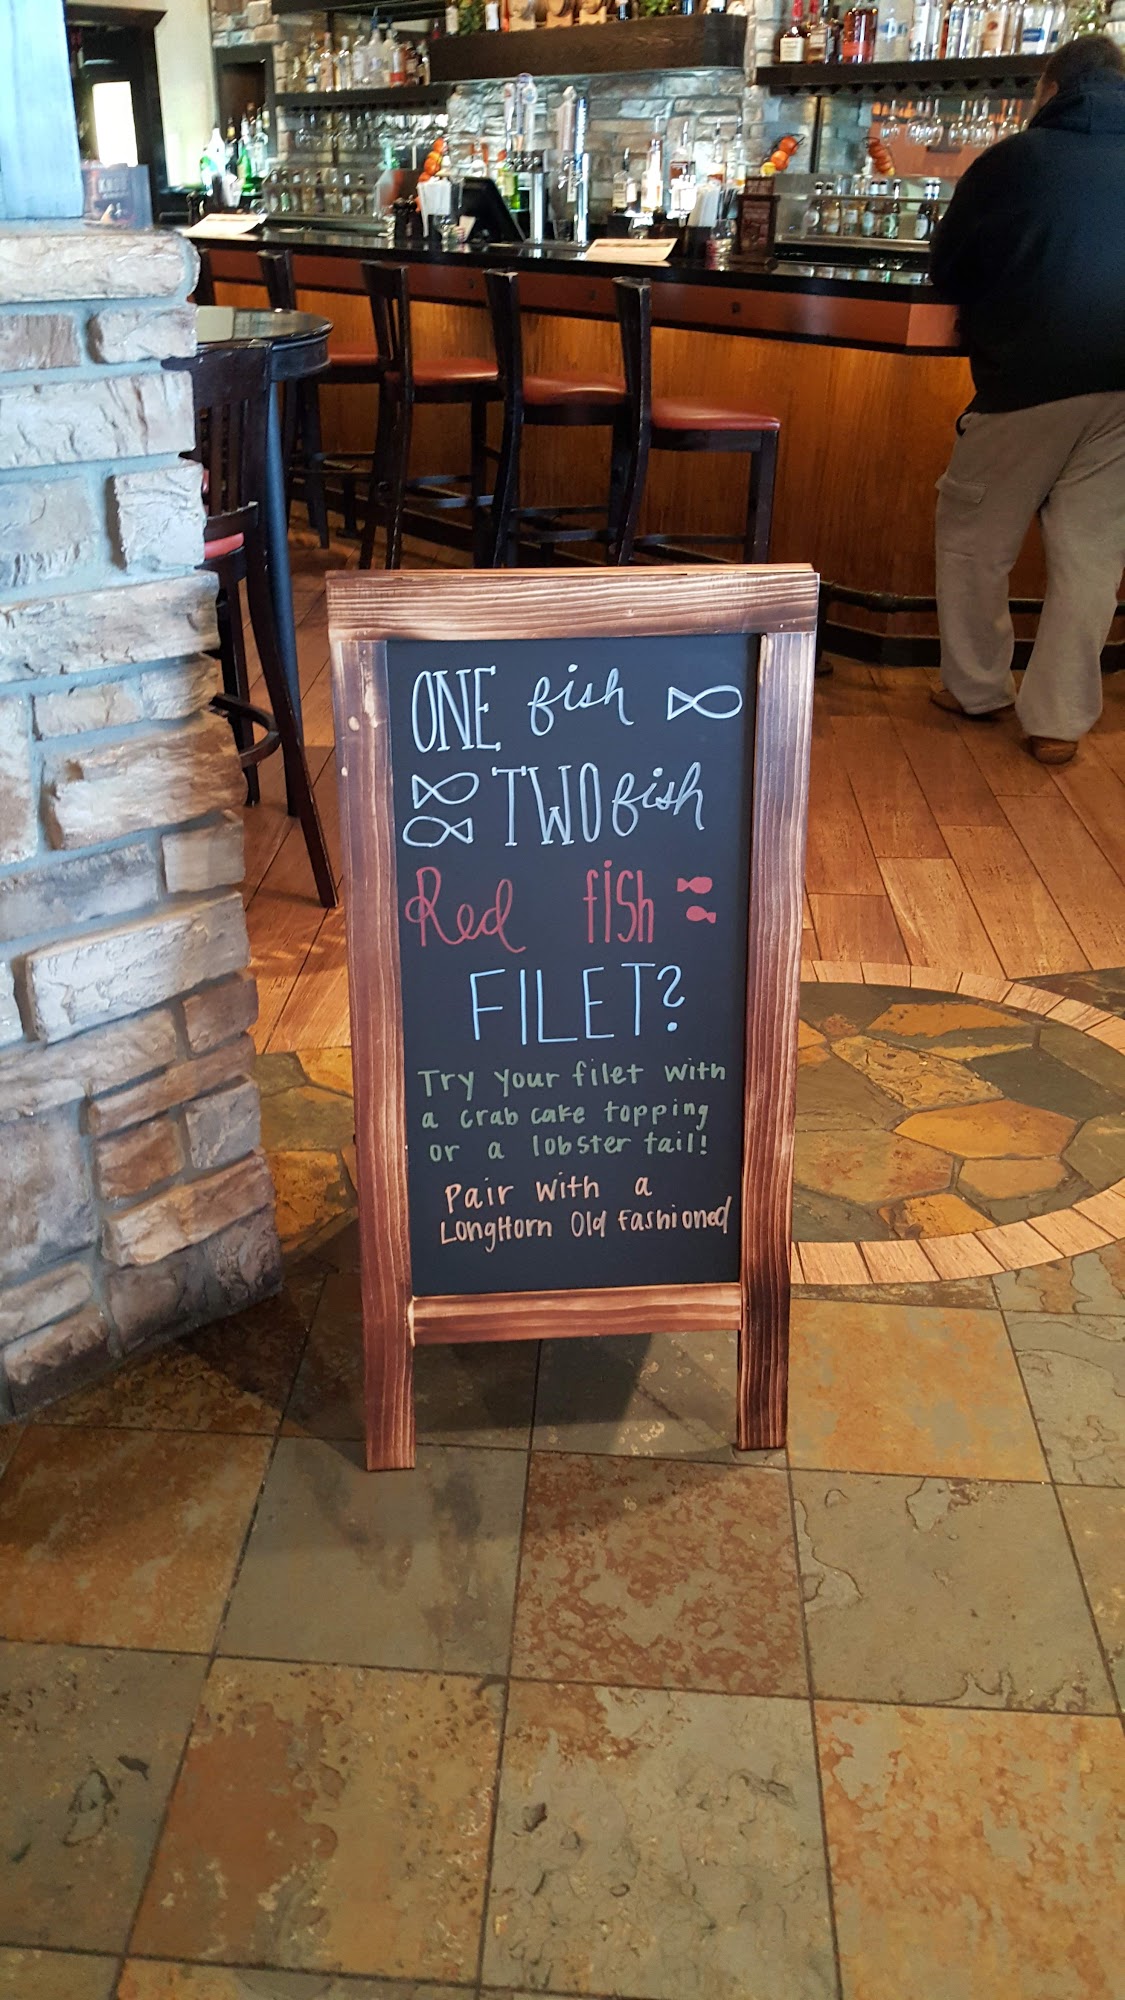 ONE fish
TWO fish
Red fish
FILET?
Try your filet with
a crab cake topping
or a lobster tail!
Pair with a
LongHorn Old Fashioned